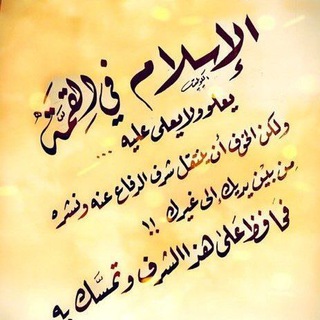 الإسلام في القمَّة
يعلو ولا يعلى عليه ...
ولكن الخوف أن ينتقل شرف الدفاع عنه ونشره
مِن بيْن يديك إلى غيرك !!
فحَافظ عَلى هذا الشرف وتمسَّك به